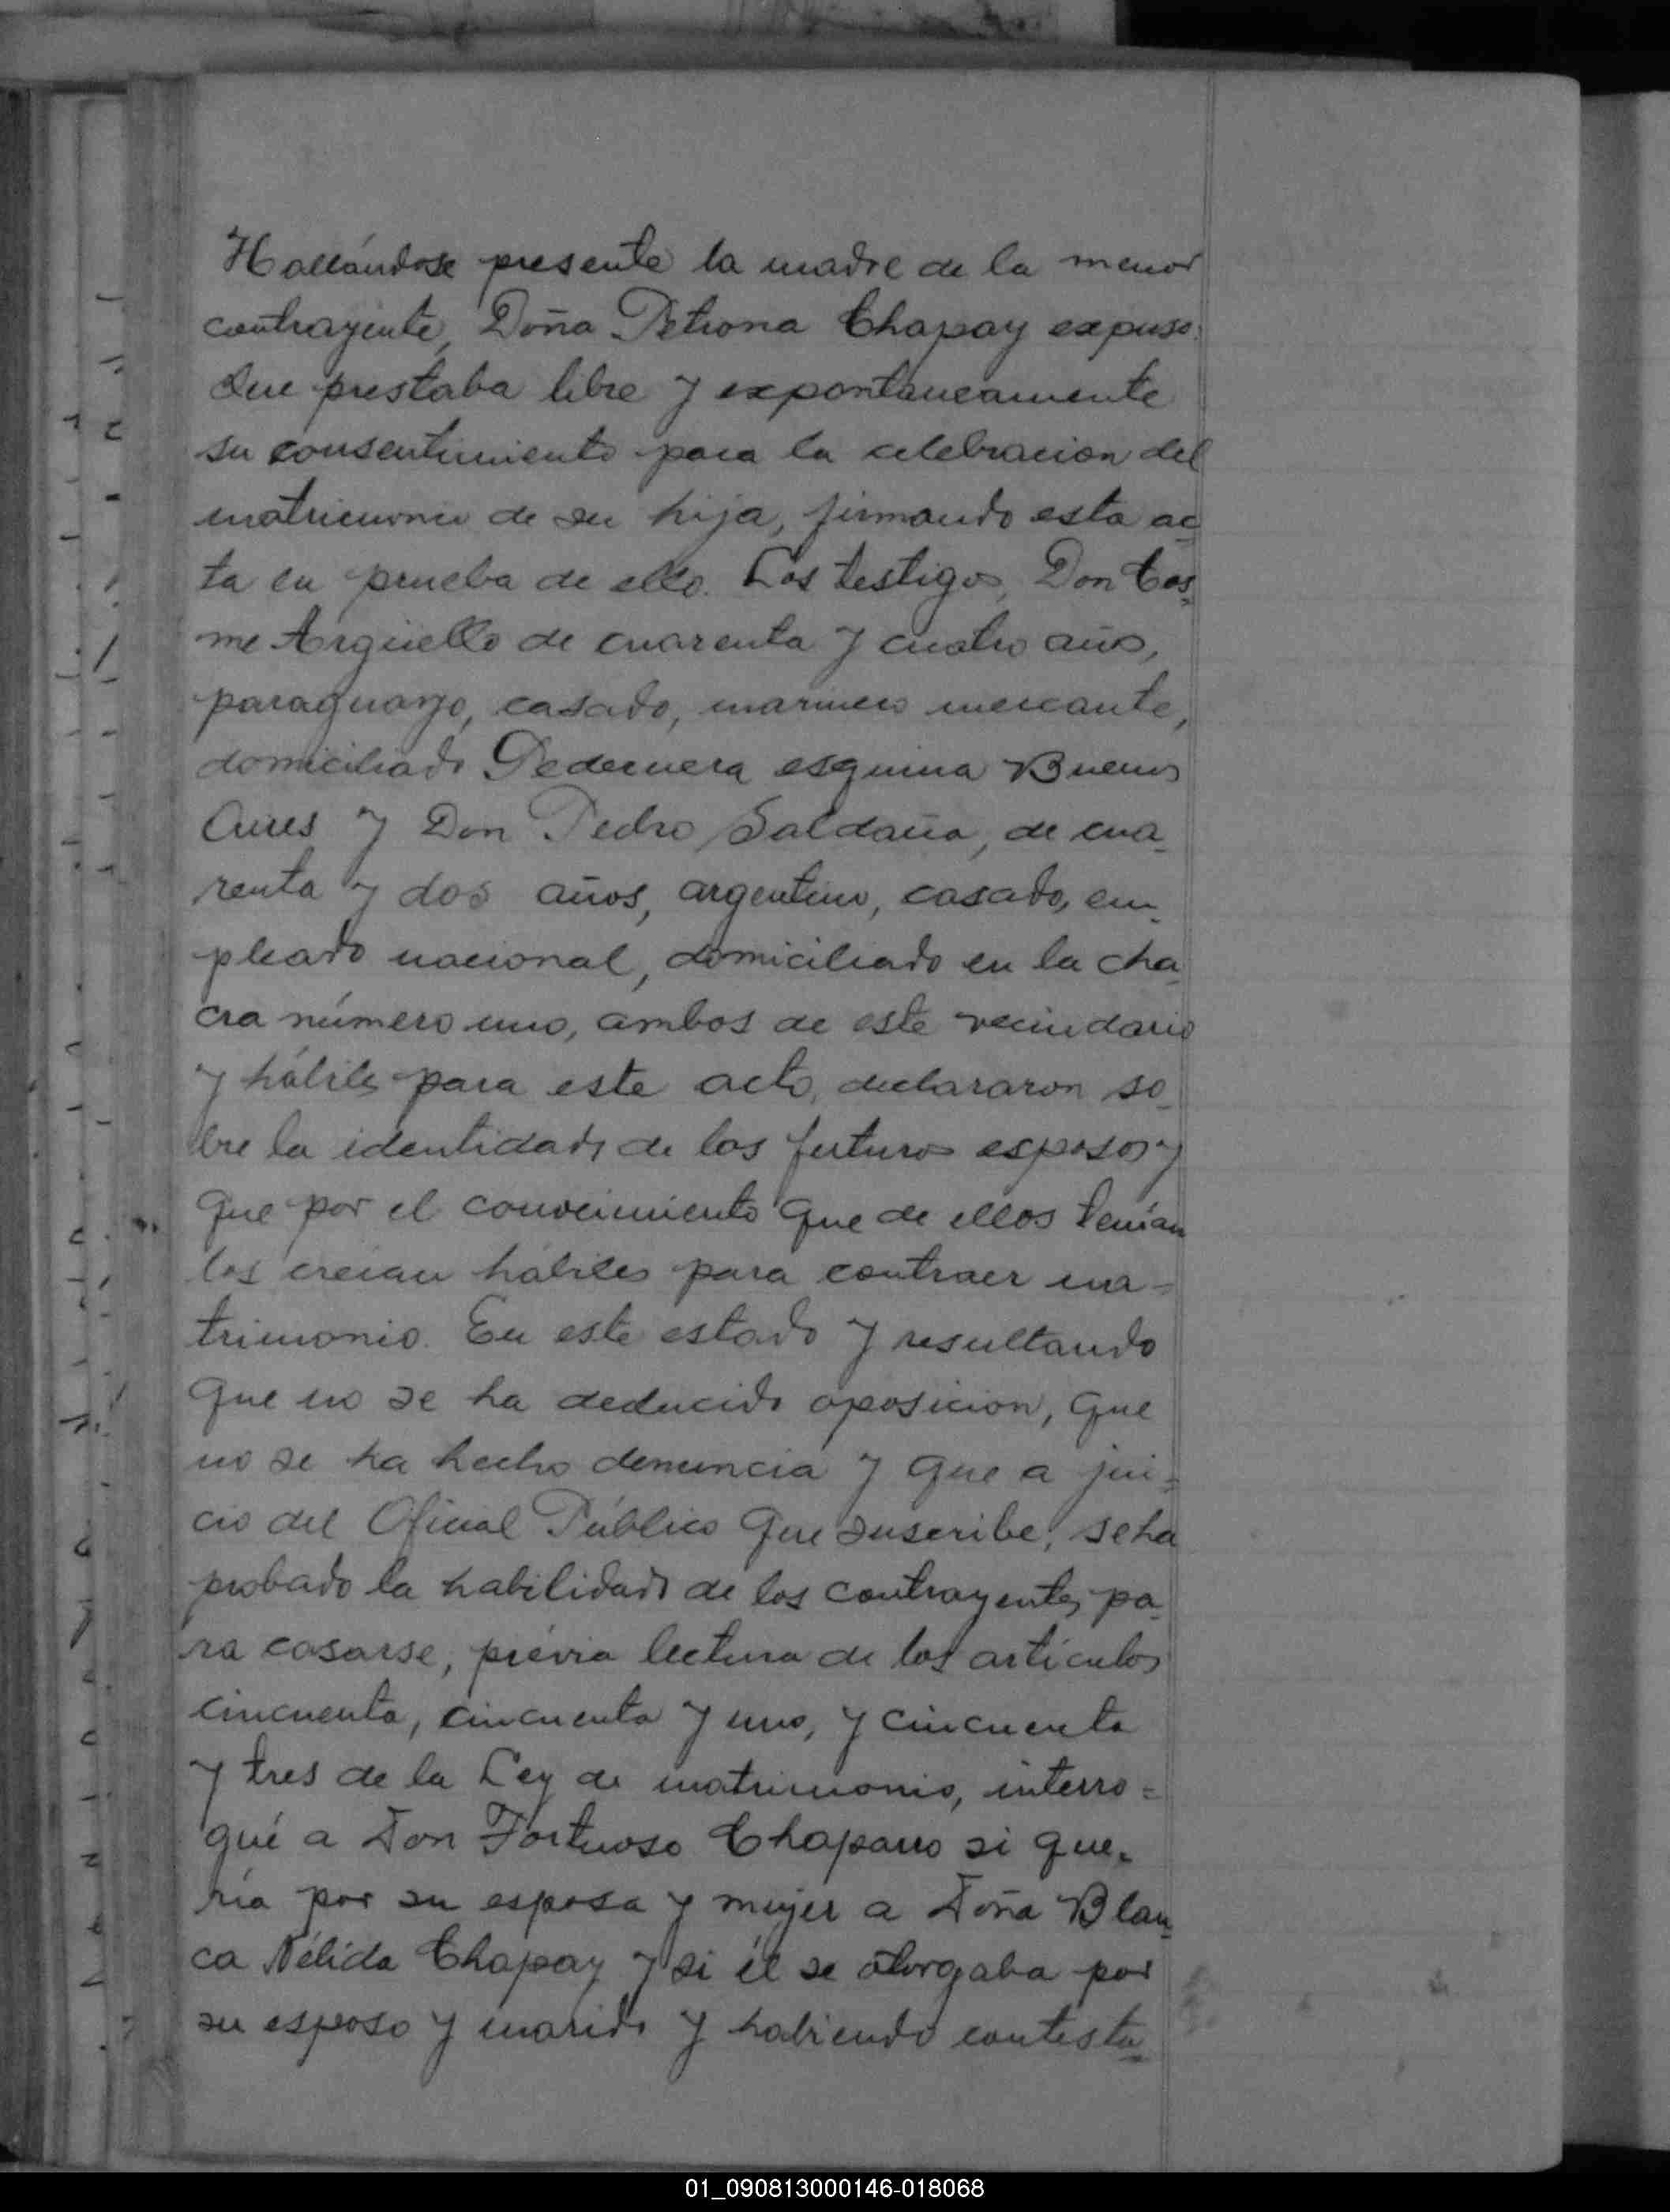 Hallándose presente la madre de la menor
contrayente, Doña Petrona Chapay expuso:
Que prestaba libre y expontaneamente
su consentimiento para la celebracion del
matrimonio de su hija, firmando esta ac-
ta en prueba de ello. Los testigos, Don Cos-
me Argüello de cuarenta y cuatro años,
paraguayo, casado, marinero mercante,
domiciliado Pedernera esquina Buenos
Aires y Don Pedro Saldaña, de cua-
renta y dos años, argentino, casado, em-
pleado nacional, domiciliado en la cha-
cra número uno, ambos de este vecindario
y hábiles para este acto, declararon so-
bre la identidad de los futuros esposos y
que por el conocimiento que de ellos tenían
los creian hábiles para contraer ma-
trimonio. En este estado y resultando
que no se ha deducido oposicion, que
no se ha hecho denuncia y que a jui-
cio del Oficial Público que suscribe, se ha
probado la habilidad de los contrayentes pa-
ra casarse, prévia lectura de los artículos
cincuenta, cincuenta y uno, y cincuenta
y tres de la Ley de matrimonio, interro=
gué a Don Fortuoso Chaparro si que-
ría por su esposa y mujer a Doña Blan-
ca Nélida Chapay y si él se otorgaba por
su esposo y marido y habiendo contesta-
01_090813000146-018068